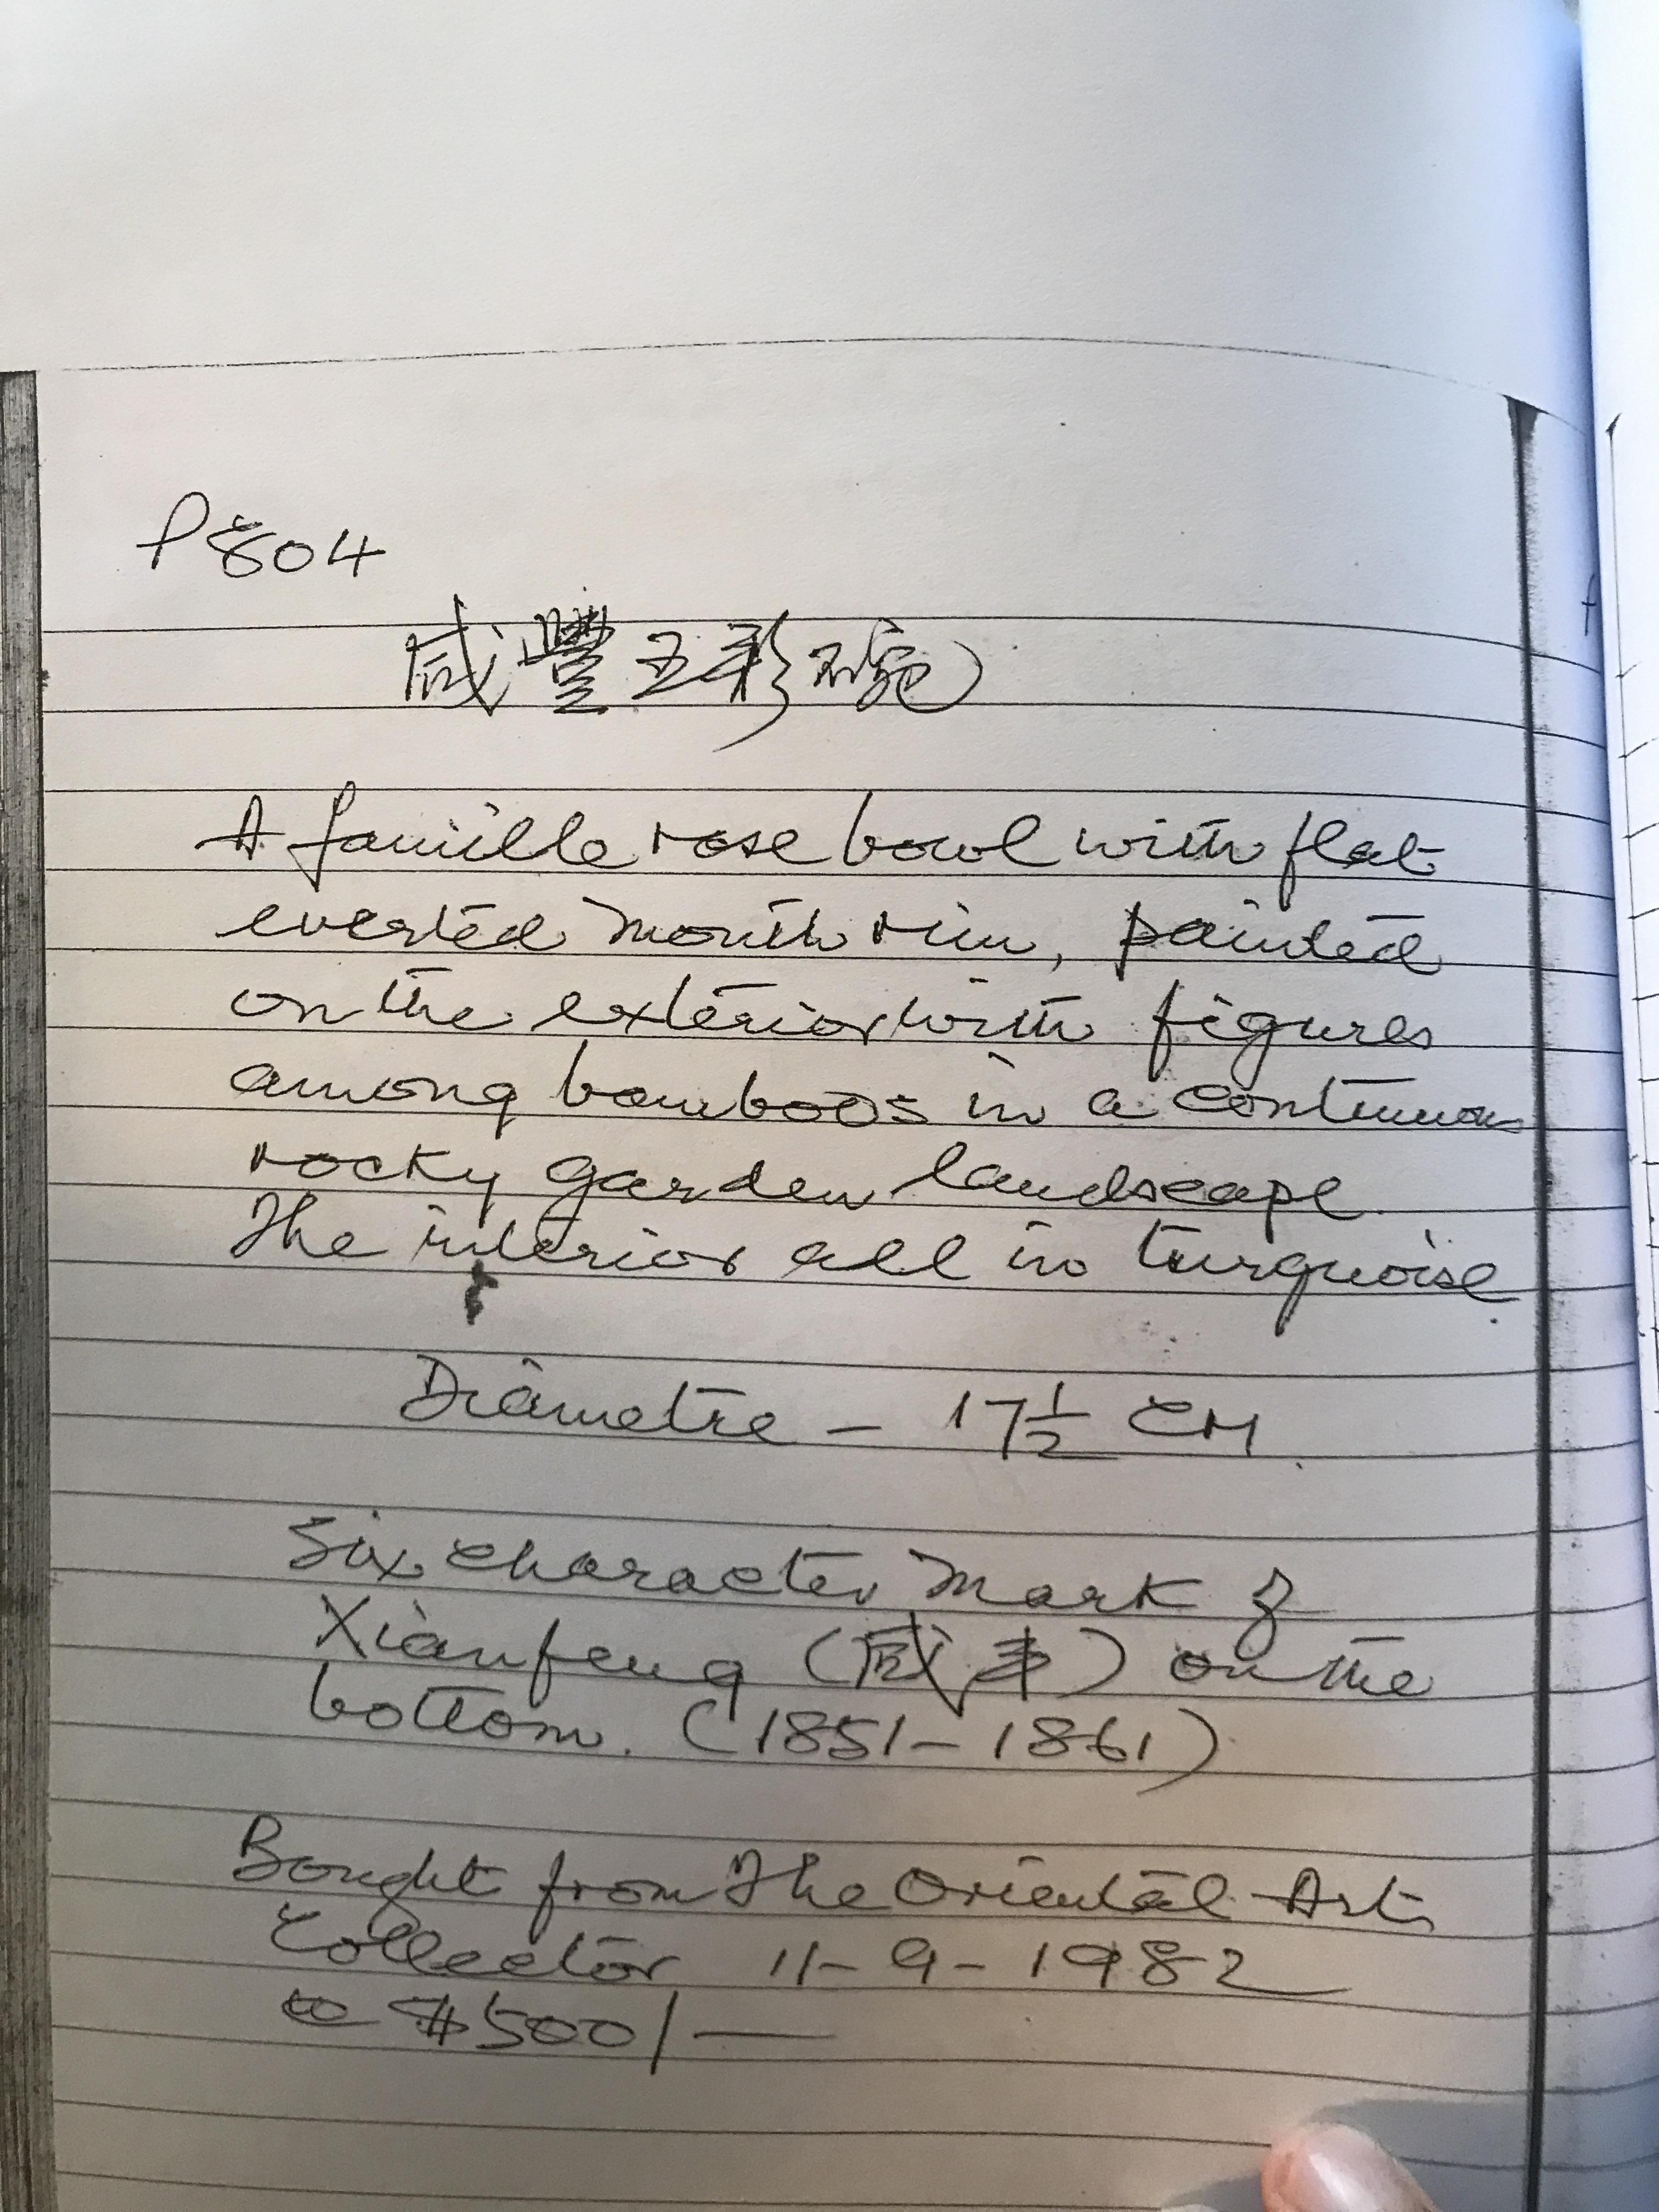 P804
咸豐五彩碗
A famille rose bowl with flat
everted mouth rim, painted
on the exterior with figures
among bamboos in a continuous
rocky garden landscape.
The interior all in turquoise.
Diametre – 17 1/2 CM.
Six character mark of
Xianfeng (咸丰) on the
bottom. (1851–1861)
Bought from The Oriental Arts
Collector 11–9–1982
@ $500/—